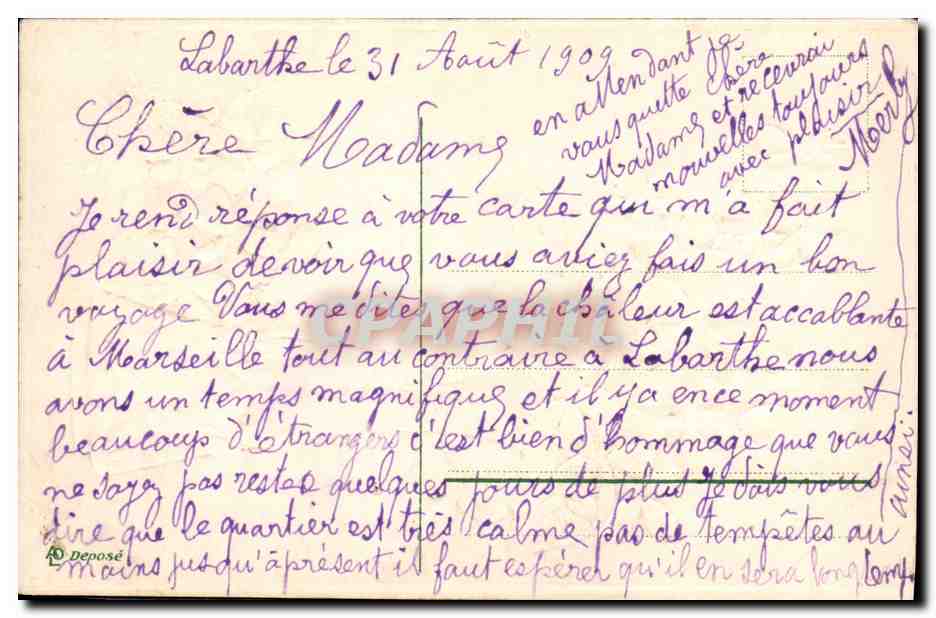 Labarthe le 31 Août 1909
Chère Madame
Je rend réponse à votre carte qui m'a fait
plaisir de voir que vous aviez fais un bon
voyage Vous me dites que la châleur est accablante
à Marseille tout au contraire à Labarthe nous
avons un temps magnifique et il y a en ce moment
beaucoup d'étrangers c'est bien d'hommage que vous
ne soyez pas restée quelques jours de plus Je dois vous
dire que le quartier est très calme pas de tempêtes au
moins jusqu'àprésent il faut espérer qu'il en sera longtemp
ainsi
en attendant je
vous quitte chère
Madame et recevrai
nouvelles toujours
avec plaisir
Déposé
CPAPHIL